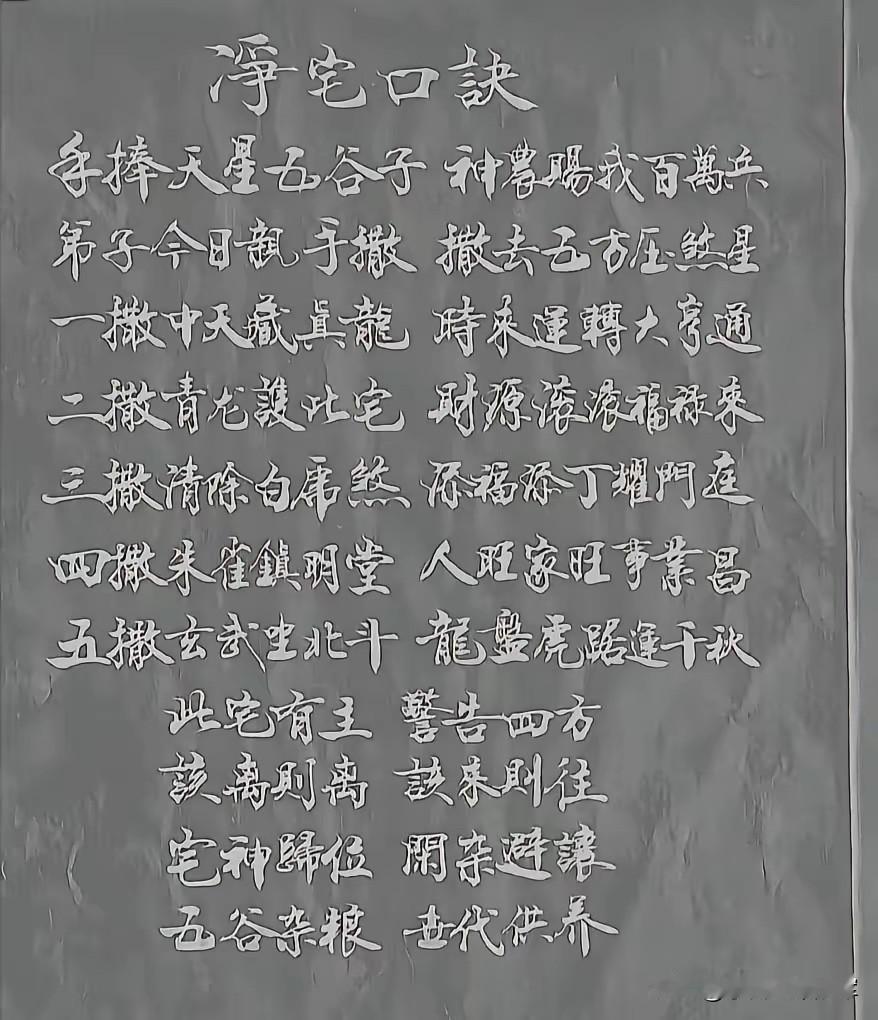 淨宅口訣
手捧天星五谷子 神農賜我百萬兵
弟子今日親手撒 撒去五方压煞星
一撒中天藏真龍 時來運轉大亨通
二撒青龙護此宅 財源滚滚福禄來
三撒清除白虎煞 添福添丁耀門庭
四撒朱雀鎮明堂 人旺家旺事業昌
五撒玄武坐北斗 龍盤虎踞運千秋
此宅有主 警告四方
該离則离 該來則往
宅神歸位 閑杂避讓
五谷杂粮 世代供养